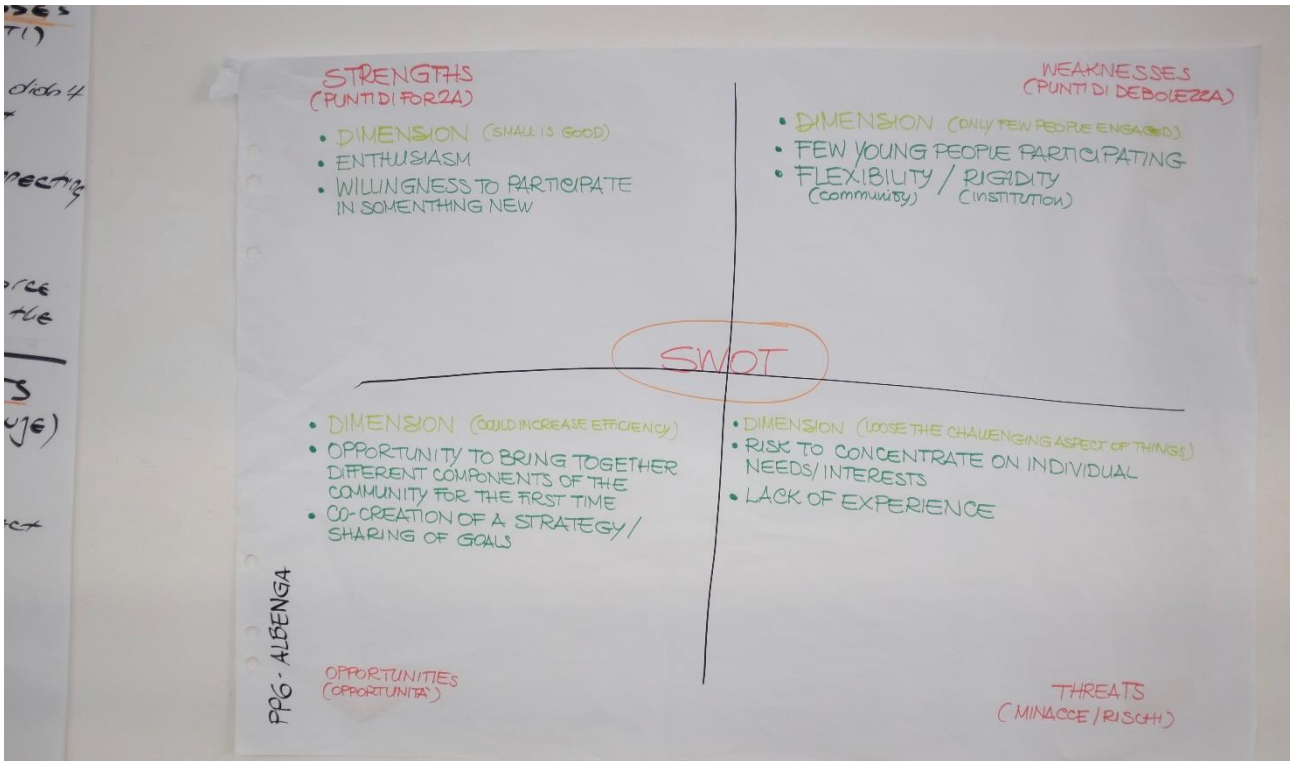 T1)
didn4
necting
orce
the
uje)
STRENGTHS
(PUNTI DI FORZA)
• DIMENSION (SMALL IS GOOD)
• ENTHUSIASM
• WILLINGNESS TO PARTICIPATE
IN SOMENTHING NEW
WEAKNESSES
(PUNTI DI DEBOLEZZA)
• DIMENSION (ONLY FEW PEOPLE ENGAGED)
• FEW YOUNG PEOPLE PARTICIPATING
• FLEXIBILITY / RIGIDITY
(community) (INSTITUTION)
SWOT
• DIMENSION (COULD INCREASE EFFICIENCY)
• OPPORTUNITY TO BRING TOGETHER
DIFFERENT COMPONENTS OF THE
COMMUNITY FOR THE FIRST TIME
• CO-CREATION OF A STRATEGY /
SHARING OF GOALS
OPPORTUNITIES
(OPPORTUNITA')
• DIMENSION (LOOSE THE CHALLENGING ASPECT OF THINGS)
• RISK TO CONCENTRATE ON INDIVIDUAL
NEEDS/INTERESTS
• LACK OF EXPERIENCE
THREATS
(MINACCE/RISCHI)
PP6 - ALBENGA